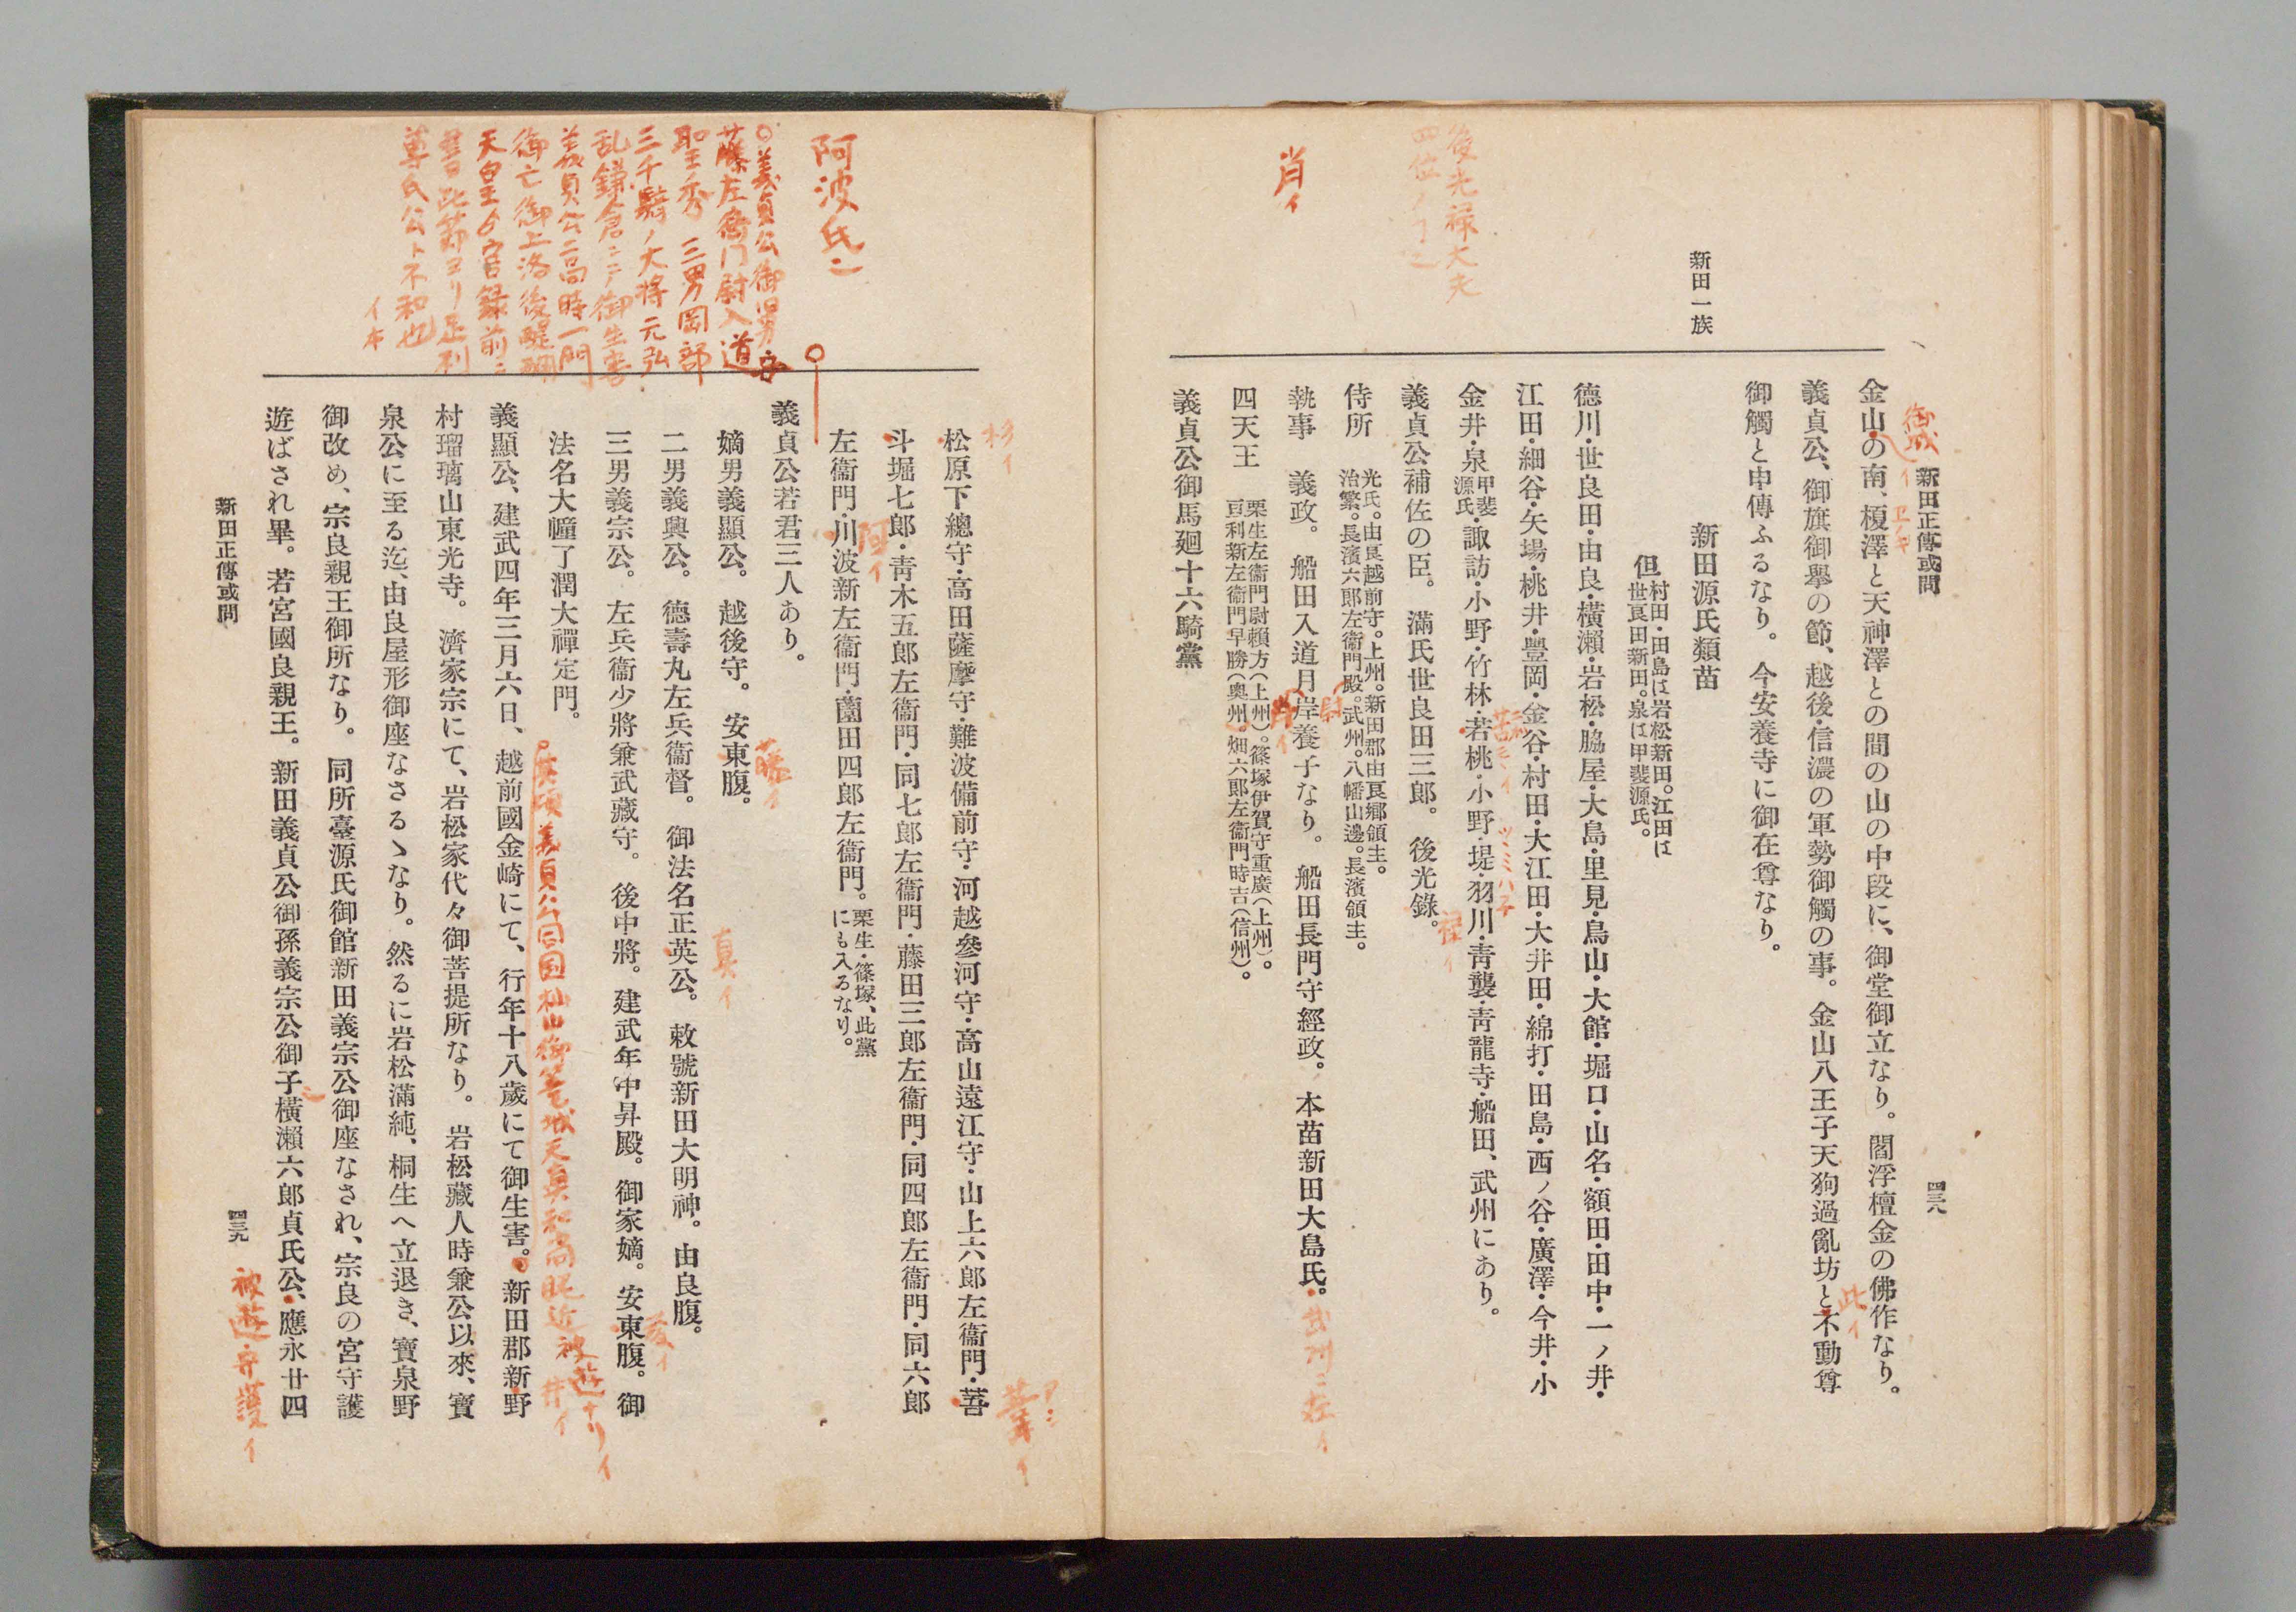 新田正傳或問
四三八
新田一族
金山の南、榎澤と天神澤との間の山の中段に、御堂御立なり。閻浮檀金の佛作なり。
義貞公、御旗御擧の節、越後・信濃の軍勢御觸の事。金山八王子天狗過亂坊と不動尊
御觸と申傳ふるなり。今安養寺に御在尊なり。
新田源氏類苗
但
村田・田島は岩松新田。江田は
世良田新田。泉は甲斐源氏。
德川・世良田・由良・橫瀨・岩松・脇屋・大島・里見・鳥山・大館・堀口・山名・額田・田中・一ノ井・
江田・細谷・矢場・桃井・豐岡・金谷・村田・大江田・大井田・綿打・田島・西ノ谷・廣澤・今井・小
金井・泉甲斐源氏・諏訪・小野・竹林・若桃・小野・堤・羽川・靑襲・靑龍寺・船田、武州にあり。
義貞公補佐の臣。滿氏世良田三郎。後光錄。
侍所
光氏。由良越前守。上州。新田郡由良鄕領主。
治繁。長濱六郎左衞門殿。武州。八幡山邊。長濱領主。
執事 義政。船田入道月岸養子なり。船田長門守經政。本苗新田大島氏。
四天王
栗生左衞門尉賴方(上州)。篠塚伊賀守重廣(上州)。
亘利新左衞門早勝(奧州)。畑六郎左衞門時吉(信州)。
義貞公御馬廻十六騎黨
後光祿大夫
肖イ
御城イ
此イ
祿イ
尉
肖イ
武州ニ在イ
松原下總守・高田薩摩守・難波備前守・河越參河守・高山遠江守・山上六郎左衞門・萻
斗堀七郎・靑木五郎左衞門・同七郎左衞門・藤田三郎左衞門・同四郎左衞門・同六郎
左衞門・川波新左衞門・薗田四郎左衞門。
栗生・篠塚、此黨
にも入るなり。
義貞公若君三人あり。
嫡男義顯公。越後守。安東腹。
二男義興公。德壽丸左兵衞督。御法名正英公。敕號新田大明神。由良腹。
三男義宗公。左兵衞少將兼武藏守。後中將。建武年中昇殿。御家嫡。安東腹。御
法名大幢了潤大禪定門。
義顯公、建武四年三月六日、越前國金崎にて、行年十八歲にて御生害。新田郡新野
村瑠璃山東光寺。濟家宗にて、岩松家代々御菩提所なり。岩松藏人時兼公以來、寶
泉公に至る迄、由良屋形御座なさるゝなり。然るに岩松滿純、桐生へ立退き、寶泉野
御改め、宗良親王御所なり。同所臺源氏御館新田義宗公御座なされ、宗良の宮守護
遊ばされ畢。若宮國良親王。新田義貞公御孫義宗公御子橫瀨六郎貞氏公、應永廿四
新田正傳或問
四三九
阿波氏ニ
藤左衞門尉入道
聖秀 三男岡部
三千騎ノ大將 元弘
乱鎌倉ニテ御生害
義貞公ニ高時一門
御亡御上洛後醍醐
尊氏公ト不和也
イ本
杉イ
阿イ
藤イ
真イ
井イ
被遊守護イ